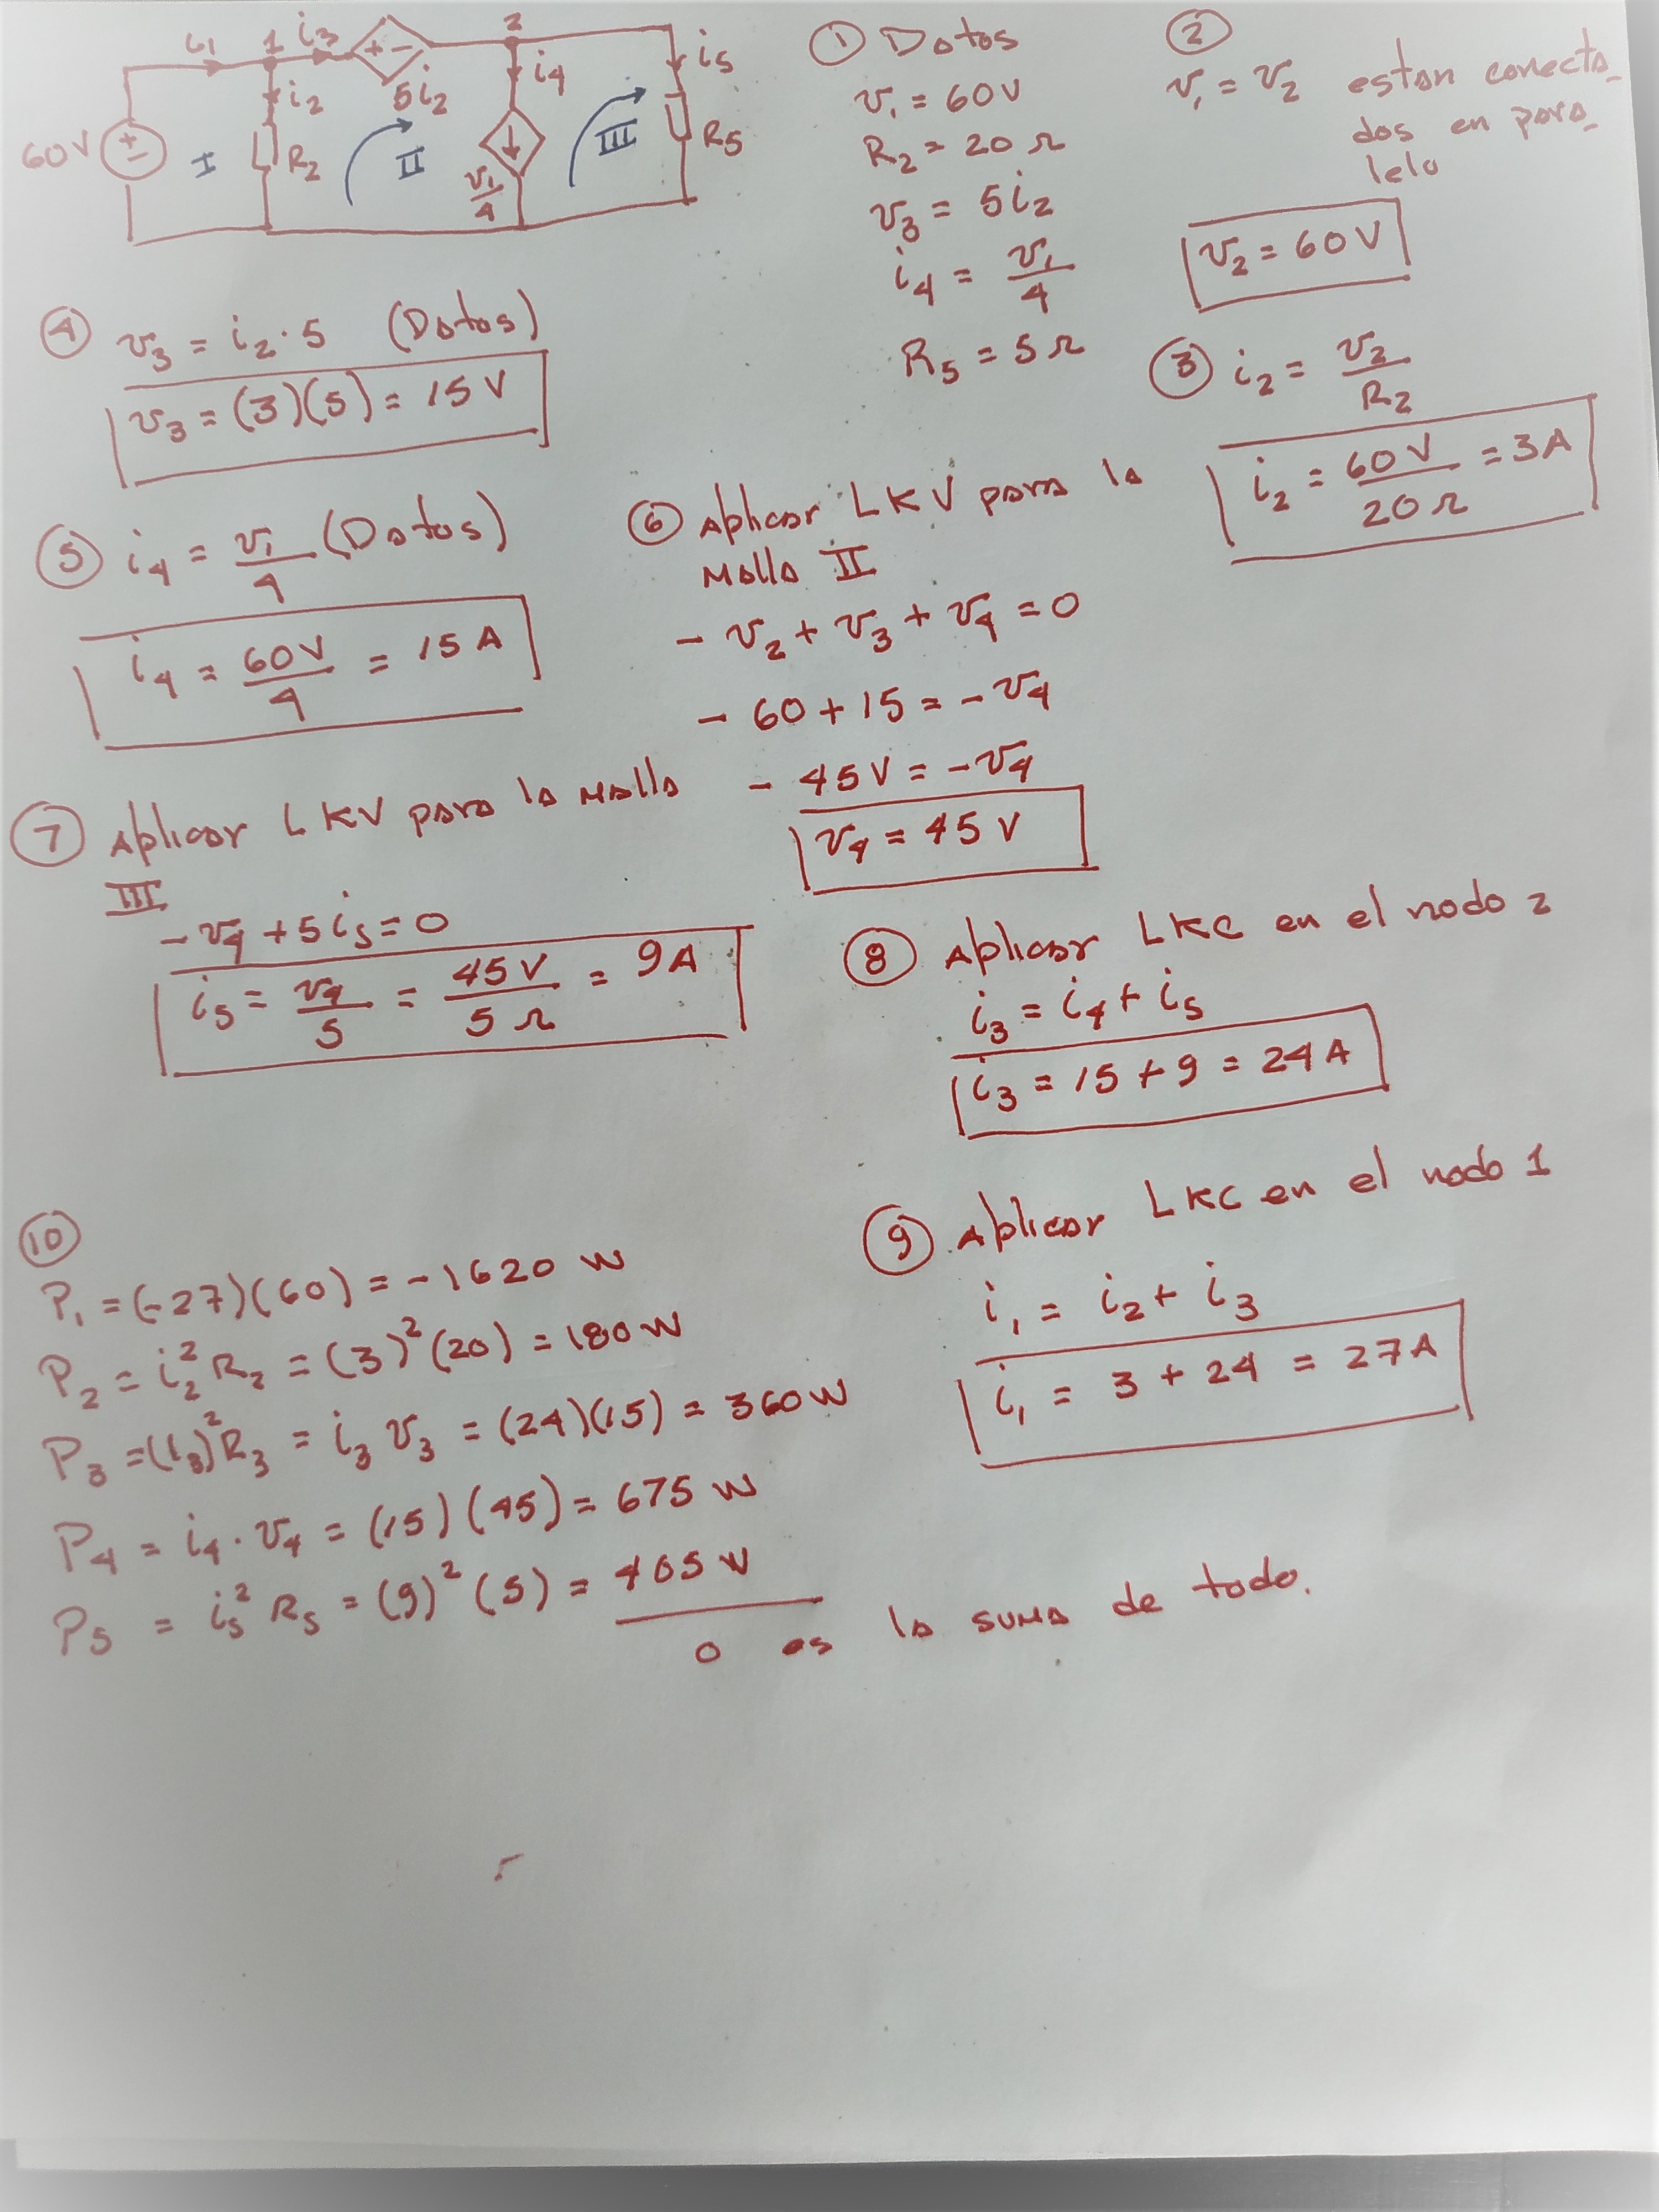 i1 1 i3 + - 2
5i2 i4 i5
i2
60V + - I R2 II III R5
v1/4
① Datos
v1 = 60V
R2 = 20 Ω
v3 = 5i2
i4 = v1/4
R5 = 5 Ω
②
v1 = v2 estan conecta-
dos en para-
lelo
v2 = 60V
③ i2 = v2/R2
i2 = 60V/20Ω = 3A
④ v3 = i2·5 (Datos)
v3 = (3)(5) = 15 V
⑤ i4 = v1/4 (Datos)
i4 = 60V/4 = 15 A
⑥ Aplicar LKV para la
Malla II
- v2 + v3 + v4 = 0
- 60 + 15 = - v4
- 45V = - v4
v4 = 45 V
⑦ Aplicar LKV para la Malla
III
- v4 + 5i5 = 0
i5 = v4/5 = 45V/5Ω = 9A
⑧ Aplicar LKC en el nodo 2
i3 = i4 + i5
i3 = 15 + 9 = 24 A
⑨ Aplicar LKC en el nodo 1
i1 = i2 + i3
i1 = 3 + 24 = 27A
⑩
P1 = (-27)(60) = -1620 W
P2 = i2² R2 = (3)² (20) = 180 W
P3 = (i3)² R3 = i3 v3 = (24)(15) = 360 W
P4 = i4 · v4 = (15)(45) = 675 W
P5 = i5² R5 = (9)² (5) = 405 W
0 es la suma de todo.